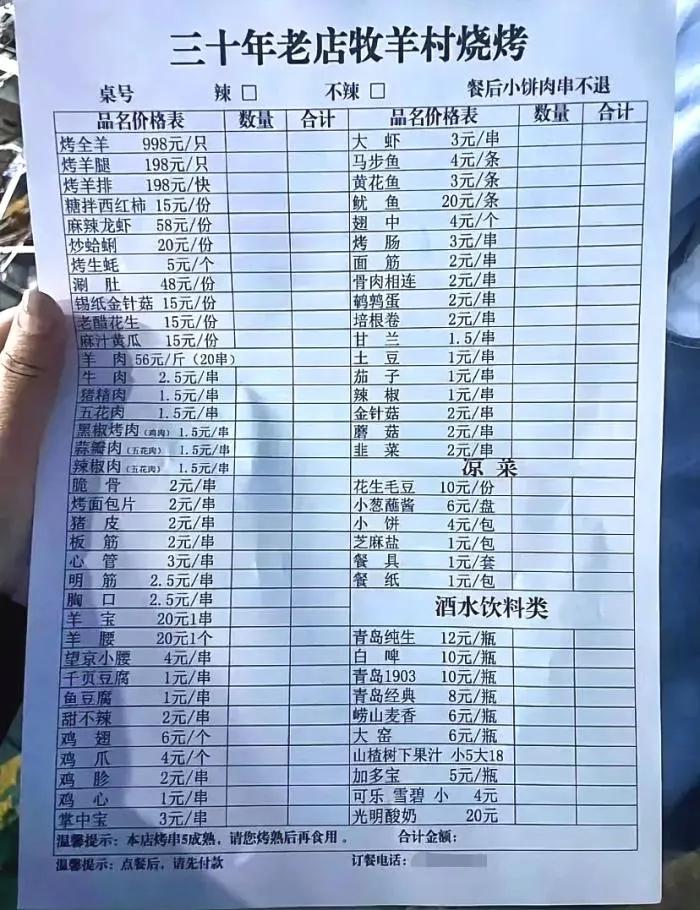 三十年老店牧羊村烧烤
桌号 辣 □ 不辣 □ 餐后小饼肉串不退
品名价格表 数量 合计 品名价格表 数量 合计
烤全羊 998元/只 大虾 3元/串
烤羊腿 198元/只 马步鱼 4元/条
烤羊排 198元/快 黄花鱼 3元/条
糖拌西红柿 15元/份 鱿鱼 20元/条
麻辣龙虾 58元/份 翅中 4元/个
炒蛤蜊 20元/份 烤肠 3元/串
烤生蚝 5元/个 面筋 2元/串
涮肚 48元/份 骨肉相连 2元/串
锡纸金针菇 15元/份 鹌鹑蛋 2元/串
老醋花生 15元/份 培根卷 2元/串
麻汁黄瓜 15元/份 甘兰 1.5/串
羊肉 56元/斤（20串） 土豆 1元/串
牛肉 2.5元/串 茄子 1元/串
猪精肉 1.5元/串 辣椒 1元/串
五花肉 1.5元/串 金针菇 2元/串
黑椒烤肉（鸡肉） 1.5元/串 蘑菇 2元/串
蒜瓣肉（五花肉） 1.5元/串 韭菜 2元/串
辣椒肉（五花肉） 1.5元/串 凉菜
脆骨 2元/串 花生毛豆 10元/份
烤面包片 2元/串 小葱蘸酱 6元/盘
猪皮 2元/串 小饼 4元/包
板筋 2元/串 芝麻盐 1元/包
心管 3元/串 餐具 1元/套
明筋 2.5元/串 餐纸 1元/包
胸口 2.5元/串 酒水饮料类
羊宝 20元1串
羊腰 20元1个 青岛纯生 12元/瓶
望京小腰 4元/串 白啤 10元/瓶
千页豆腐 1元/串 青岛1903 10元/瓶
鱼豆腐 1元/串 青岛经典 8元/瓶
甜不辣 2元/串 崂山麦香 6元/瓶
鸡翅 6元/个 大窑 6元/瓶
鸡爪 4元/个 山楂树下果汁 小5大18
鸡胗 2元/串 加多宝 5元/瓶
鸡心 1元/串 可乐 雪碧 小 4元
掌中宝 3元/串 光明酸奶 20元
温馨提示：本店烤串5成熟，请您烤熟后再食用。 合计金额：
温馨提示：点餐后，请先付款 订餐电话：